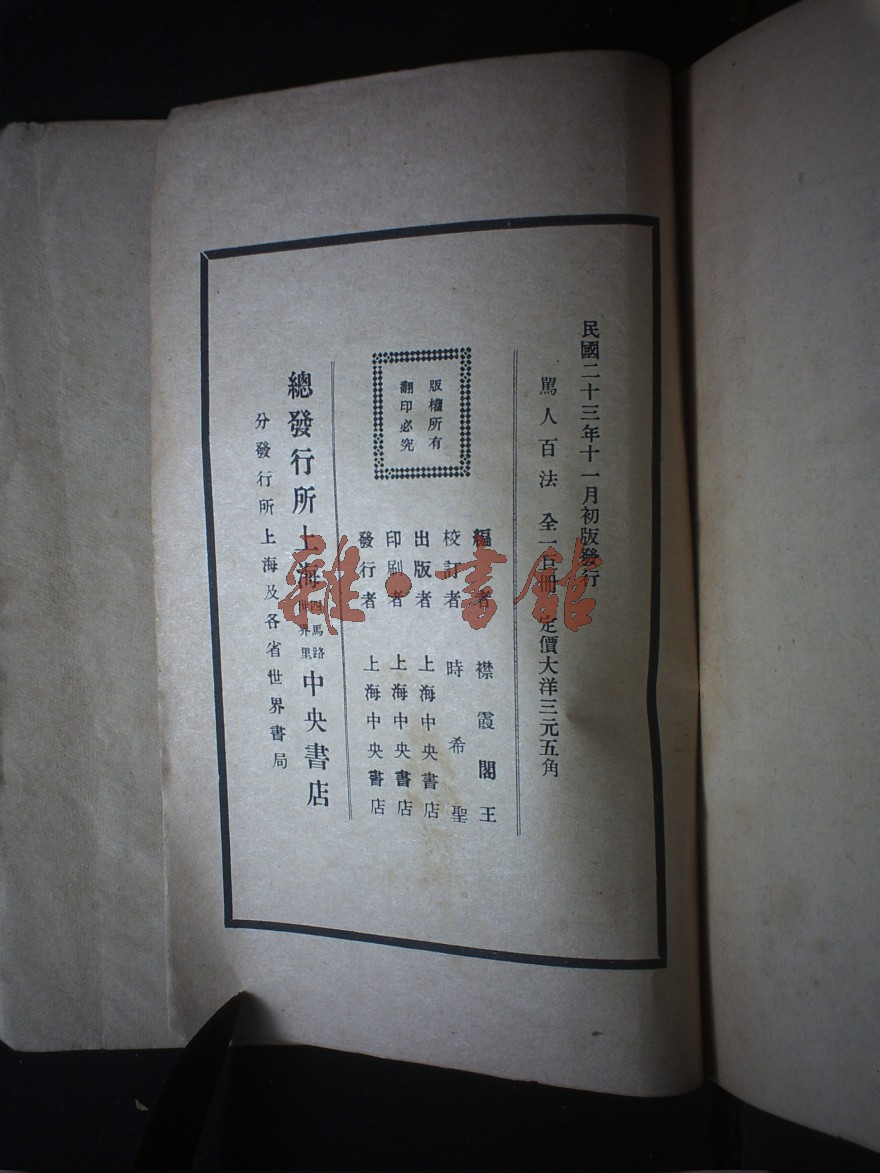 民國二十三年十一月初版發行
罵人百法 全一百冊 定價大洋三元五角
編者 襟霞閣王
校訂者 時希聖
出版者 上海中央書店
印刷者 上海中央書店
發行者 上海中央書店
版權所有
翻印必究
總發行所上海四馬路世界里中央書店
分發行所上海及各省世界書局
雜·書館